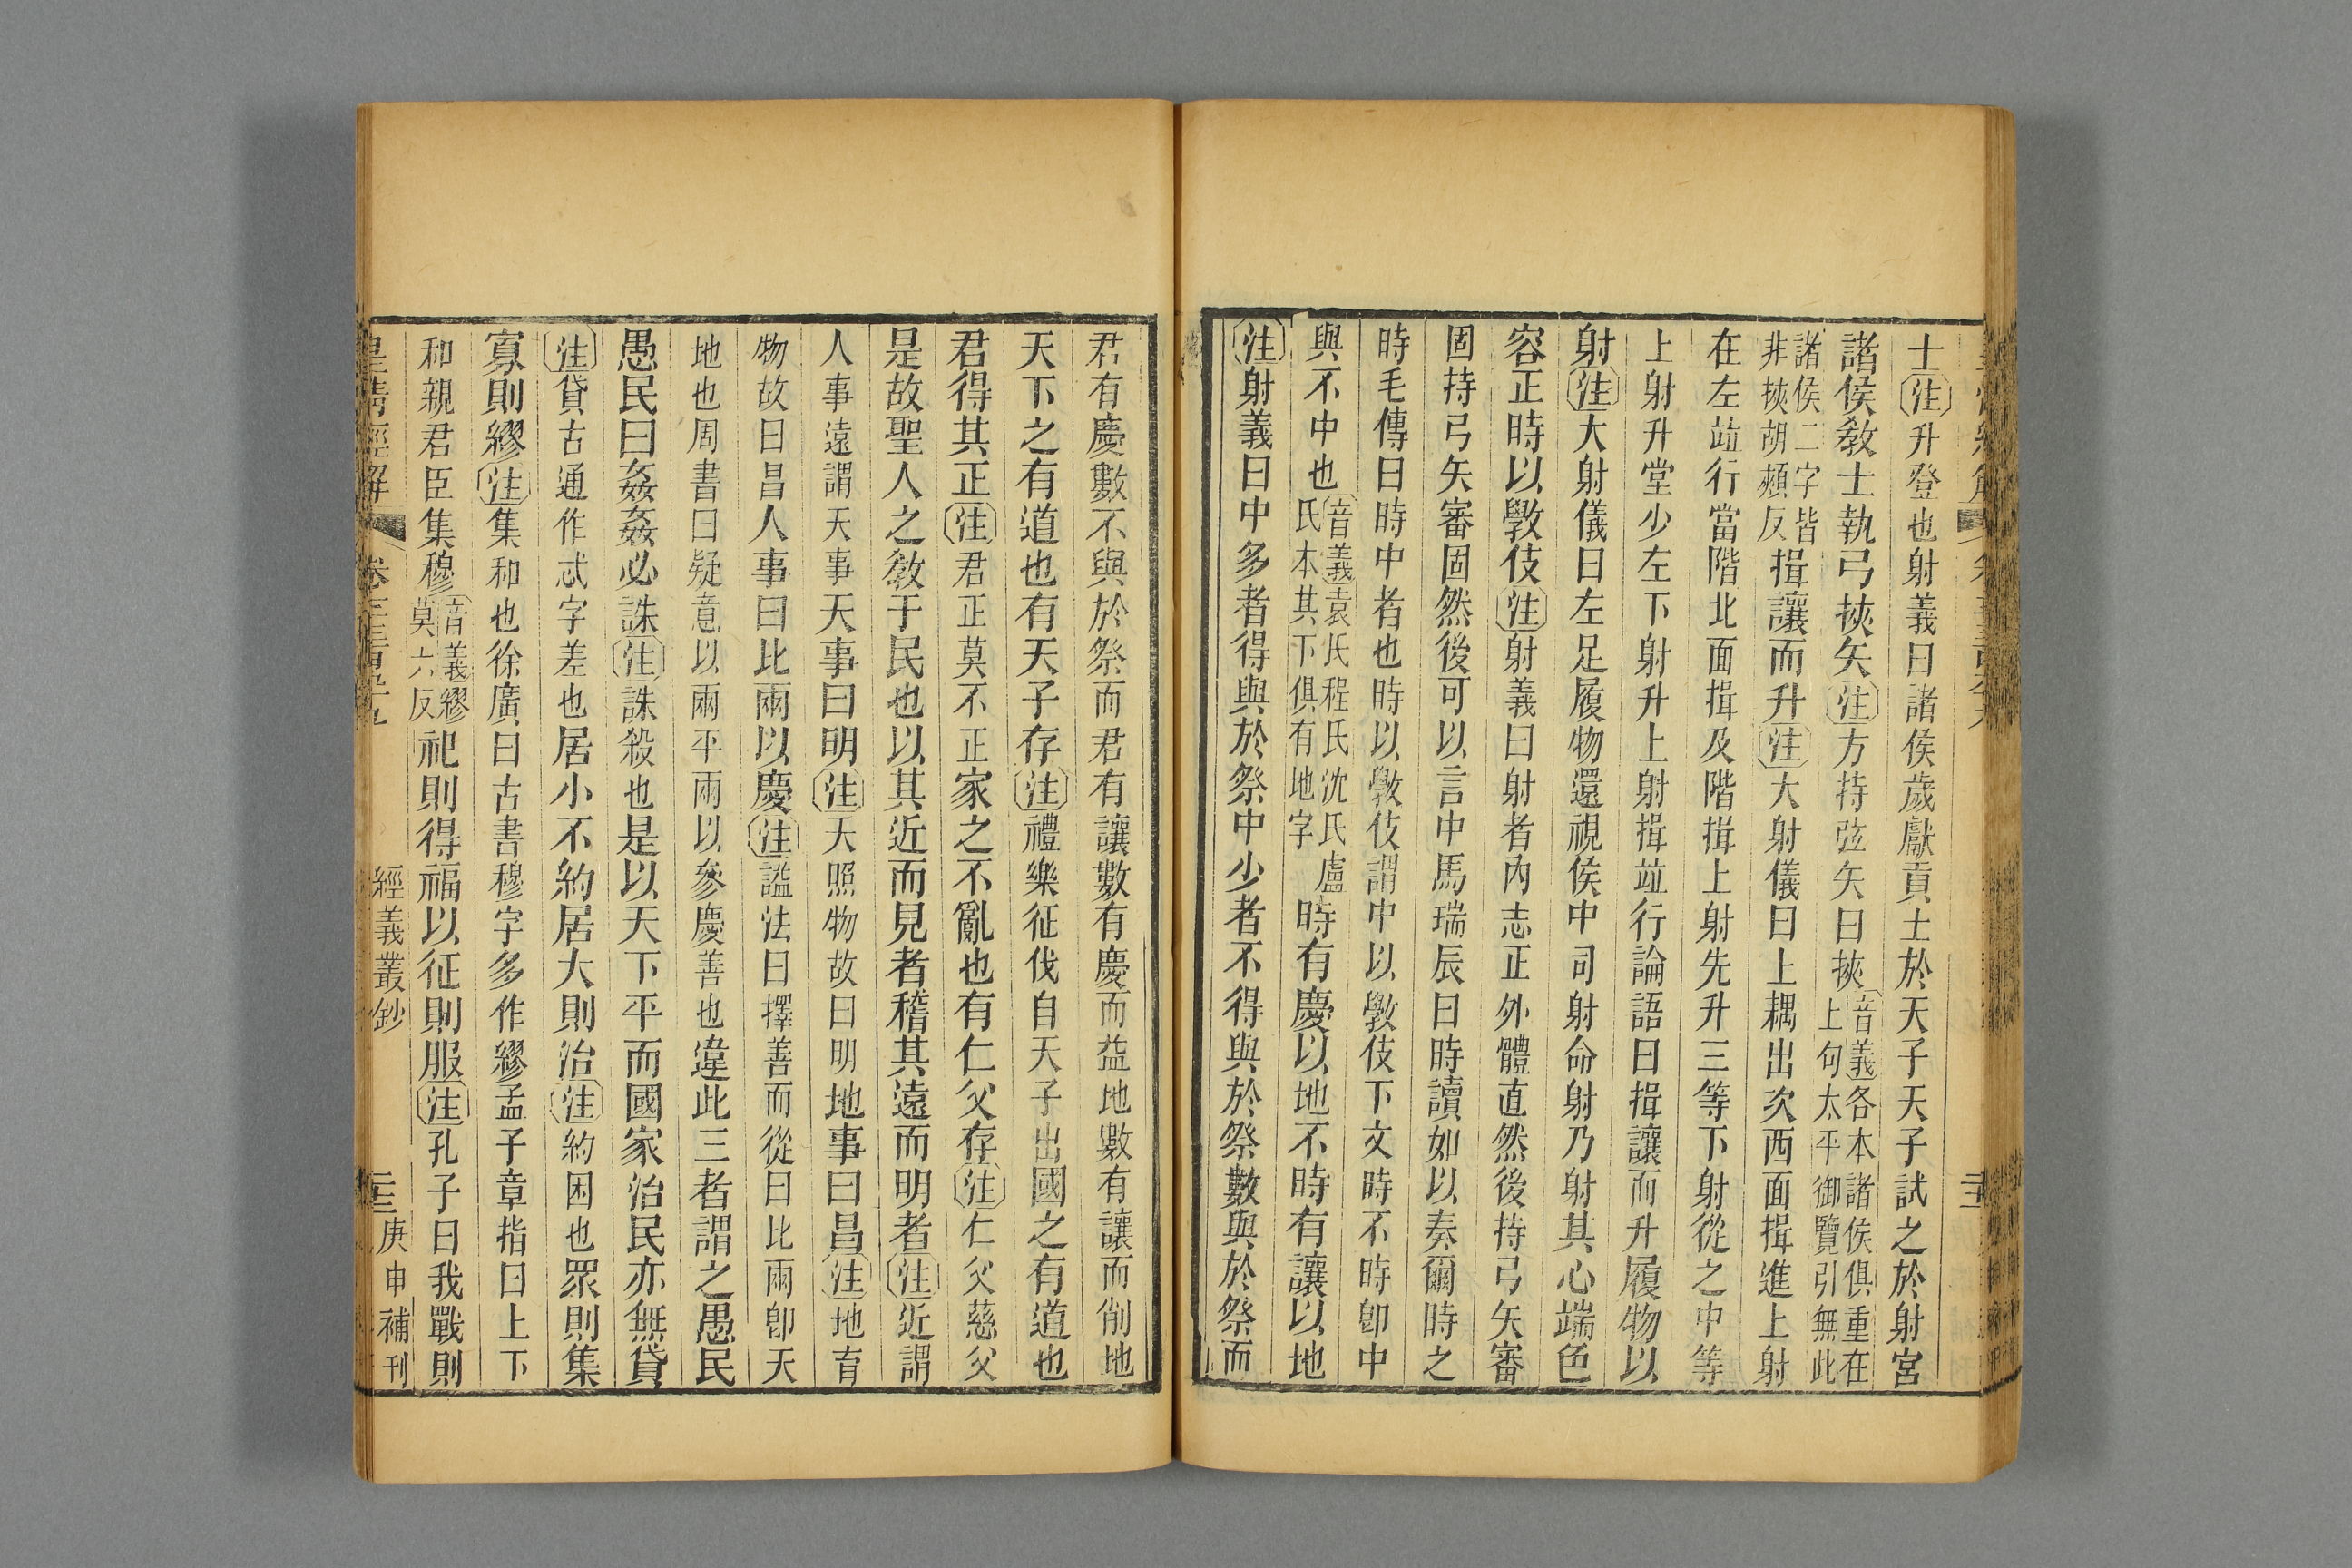 士注升登也射義曰諸侯歲獻貢士於天子天子試之於射宮
諸侯敎士執弓挾矢注方持弦矢曰挾音義各本諸侯俱重在
上句太平御覽引無此
諸侯二字皆
非挾胡頰反揖讓而升注大射儀曰上耦出次西面揖進上射
在左竝行當階北面揖及階揖上射先升三等下射從之中等
上射升堂少左下射升上射揖竝行論語曰揖讓而升履物以
射注大射儀曰左足履物還視侯中司射命射乃射其心端色
容正時以斆伎注射義曰射者內志正外體直然後持弓矢審
固持弓矢審固然後可以言中馬瑞辰曰時讀如以奏爾時之
時毛傳曰時中者也時以斆伎謂中以斆伎下文時不時卽中
與不中也音義袁氏程氏沈氏盧
氏本其下俱有地字時有慶以地不時有讓以地
注射義曰中多者得與於祭中少者不得與於祭數與於祭而
君有慶數不與於祭而君有讓數有慶而益地數有讓而削地
天下之有道也有天子存注禮樂征伐自天子出國之有道也
君得其正注君正莫不正家之不亂也有仁父存注仁父慈父
是故聖人之敎于民也以其近而見者稽其遠而明者注近謂
人事遠謂天事天事曰明注天照物故曰明地事曰昌注地育
物故曰昌人事曰比兩以慶注謚法曰擇善而從曰比兩卽天
地也周書曰疑意以兩平兩以參慶善也違此三者謂之愚民
愚民曰姦姦必誅注誅殺也是以天下平而國家治民亦無貸
注貸古通作忒字差也居小不約居大則治注約困也眾則集
寡則繆注集和也徐廣曰古書穆字多作繆孟子章指曰上下
和親君臣集穆音義繆
莫六反祀則得福以征則服注孔子曰我戰則
皇清經解 卷一三百九 經義叢鈔 三 庚申補刊